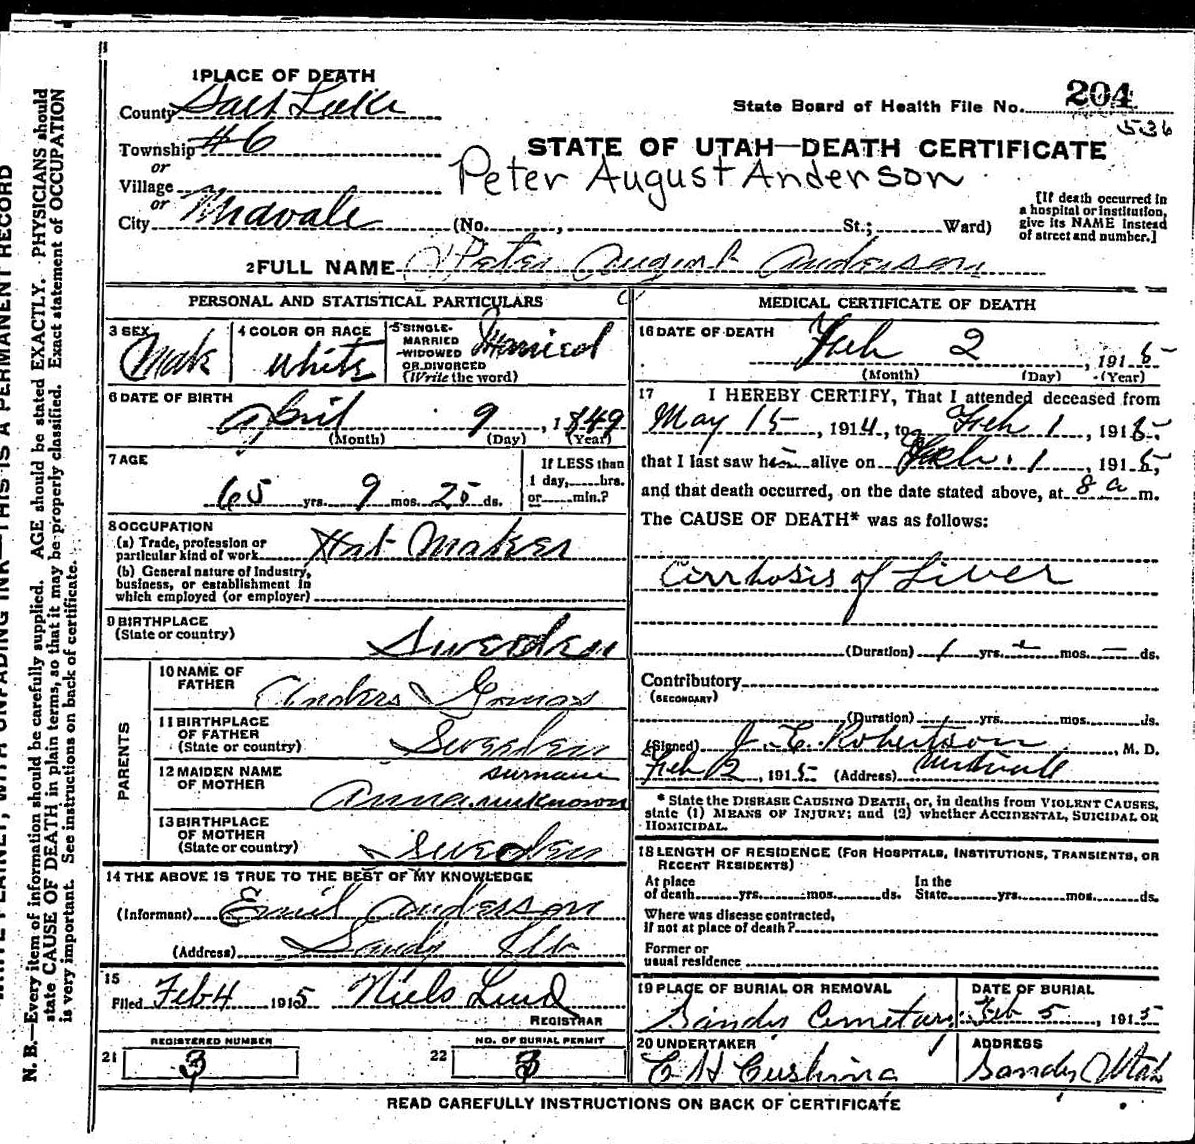 1 PLACE OF DEATH
County Salt Lake
Township #6
or
Village
or
City Midvale
State Board of Health File No. 204
536
STATE OF UTAH—DEATH CERTIFICATE
Peter August Anderson
(No. , St.; Ward)
[If death occurred in
a hospital or institution,
give its NAME instead
of street and number.]
2 FULL NAME Peter August Anderson
PERSONAL AND STATISTICAL PARTICULARS
3 SEX
Male
4 COLOR OR RACE
White
5 SINGLE-
MARRIED
WIDOWED
OR DIVORCED
(Write the word)
Married
6 DATE OF BIRTH
April 9, 1849
(Month) (Day) (Year)
7 AGE
65 yrs. 9 mos. 25 ds.
If LESS than
1 day, hrs.
or min.?
8 OCCUPATION
(a) Trade, profession or
particular kind of work Hat Maker
(b) General nature of Industry,
business, or establishment in
which employed (or employer)
9 BIRTHPLACE
(State or country)
Sweeden
PARENTS
10 NAME OF
FATHER
Anders
11 BIRTHPLACE
OF FATHER
(State or country)
Sweeden
12 MAIDEN NAME
OF MOTHER
surname
Anna unknown
13 BIRTHPLACE
OF MOTHER
(State or country)
Sweeden
14 THE ABOVE IS TRUE TO THE BEST OF MY KNOWLEDGE
(Informant) Emil Anderson
(Address) Sandy Utah
15
Filed Feb 4 1915 Niels Lind
REGISTRAR
21 REGISTERED NUMBER
3
22 NO. OF BURIAL PERMIT
3
MEDICAL CERTIFICATE OF DEATH
16 DATE OF DEATH
Feb 2, 1915
(Month) (Day) (Year)
17 I HEREBY CERTIFY, That I attended deceased from
May 15, 1914, to Feb 1, 1915,
that I last saw him alive on Feb. 1, 1915,
and that death occurred, on the date stated above, at 8 a m.
The CAUSE OF DEATH* was as follows:
Cirrhosis of Liver
(Duration) 1 yrs. mos. — ds.
Contributory
(SECONDARY)
(Duration) yrs. mos. ds.
(Signed) J. C. Robertson, M. D.
Feb 2, 1915 (Address) Midvale
* State the DISEASE CAUSING DEATH, or, in deaths from VIOLENT CAUSES,
state (1) MEANS OF INJURY; and (2) whether ACCIDENTAL, SUICIDAL OR
HOMICIDAL.
18 LENGTH OF RESIDENCE (FOR HOSPITALS, INSTITUTIONS, TRANSIENTS, OR
RECENT RESIDENTS)
At place
of death yrs. mos. ds.
In the
State yrs. mos. ds.
Where was disease contracted,
if not at place of death?
Former or
usual residence
19 PLACE OF BURIAL OR REMOVAL
Sandy Cemetary
DATE OF BURIAL
Feb 5, 1915
20 UNDERTAKER
C H Cushing
ADDRESS
Sandy Utah
READ CAREFULLY INSTRUCTIONS ON BACK OF CERTIFICATE
WRITE PLAINLY, WITH UNFADING INK—THIS IS A PERMANENT RECORD
N. B.—Every item of information should be carefully supplied. AGE should be stated EXACTLY. PHYSICIANS should
state CAUSE OF DEATH in plain terms, so that it may be properly classified. Exact statement of OCCUPATION
is very important. See instructions on back of certificate.